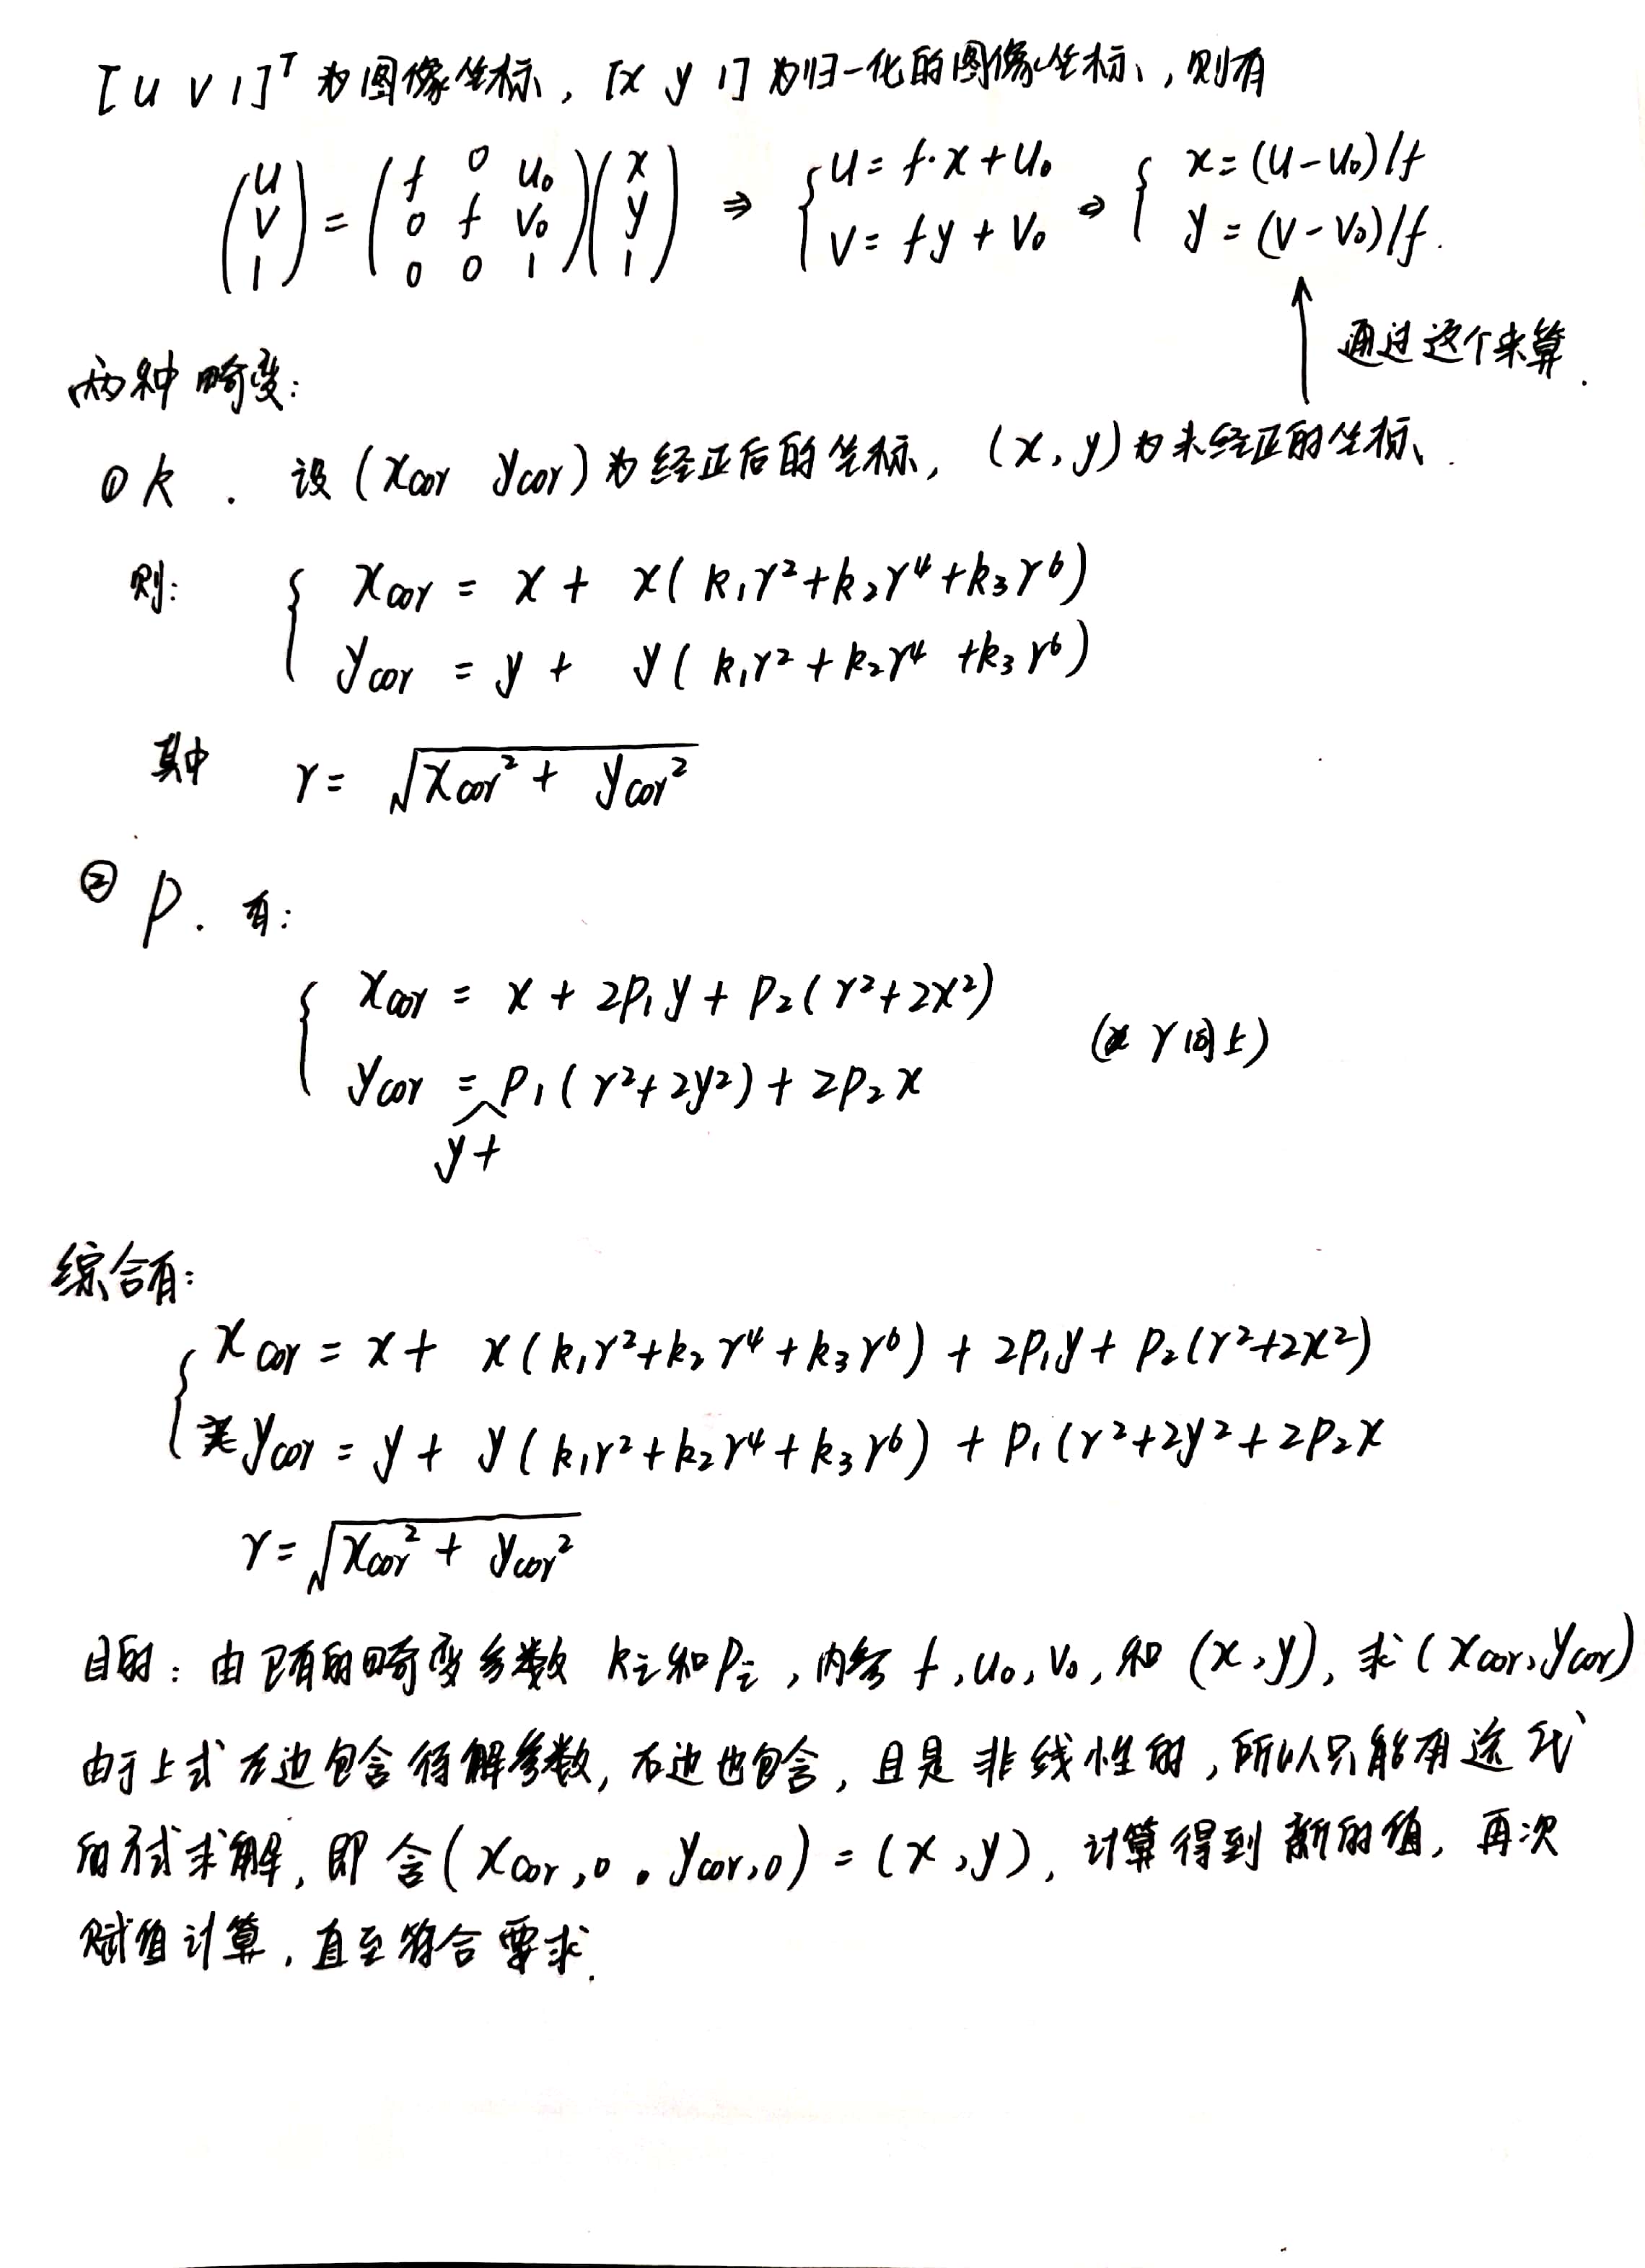 [u v 1]ᵀ 为图像坐标, [x y 1] 为归一化的图像坐标, 则有
(u v 1) = (f 0 u₀; 0 f v₀; 0 0 1)(x y 1) ⇒ { u = f·x + u₀ ⇒ { x = (u - u₀)/f
v = fy + v₀ y = (v - v₀)/f.
通过这个来算.
两种畸变:
① k. 设 (xcor ycor) 为经正后的坐标, (x, y) 为未经正的坐标.
则: { xcor = x + x(k₁r²+k₂r⁴+k₃r⁶)
ycor = y + y(k₁r²+k₂r⁴+k₃r⁶)
其中 r = √(xcor² + ycor²)
② p. 有:
{ xcor = x + 2p₁y + p₂(r²+2x²)
(r 同上)
ycor = y + p₁(r²+2y²) + 2p₂x
综合有:
{ xcor = x + x(k₁r²+k₂r⁴+k₃r⁶) + 2p₁y + p₂(r²+2x²)
ycor = y + y(k₁r²+k₂r⁴+k₃r⁶) + p₁(r²+2y²+2p₂x
r = √(xcor² + ycor²)
目的: 由已有的畸变参数 kᵢ和pᵢ, 内参 f, u₀, v₀, 和 (x, y), 求 (xcor, ycor)
由于上式左边包含待解参数, 右边也包含, 且是非线性的, 所以只能用迭代
的方式求解, 即令(xcor,0 , ycor,0) = (x, y), 计算得到新的值, 再次
赋值计算, 直至符合要求.